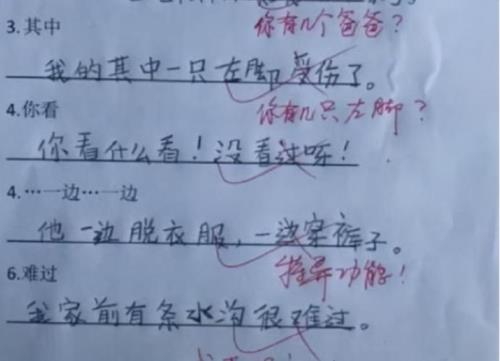 3.其中 你有几个爸爸？
我的其中一只左脚受伤了。
4.你看 你有几只左脚？
你看什么看！没看过！
4.…一边…一边
他一边脱衣服，一边穿裤子。
6.难过 特异功能！
我家前有条水沟很难过。